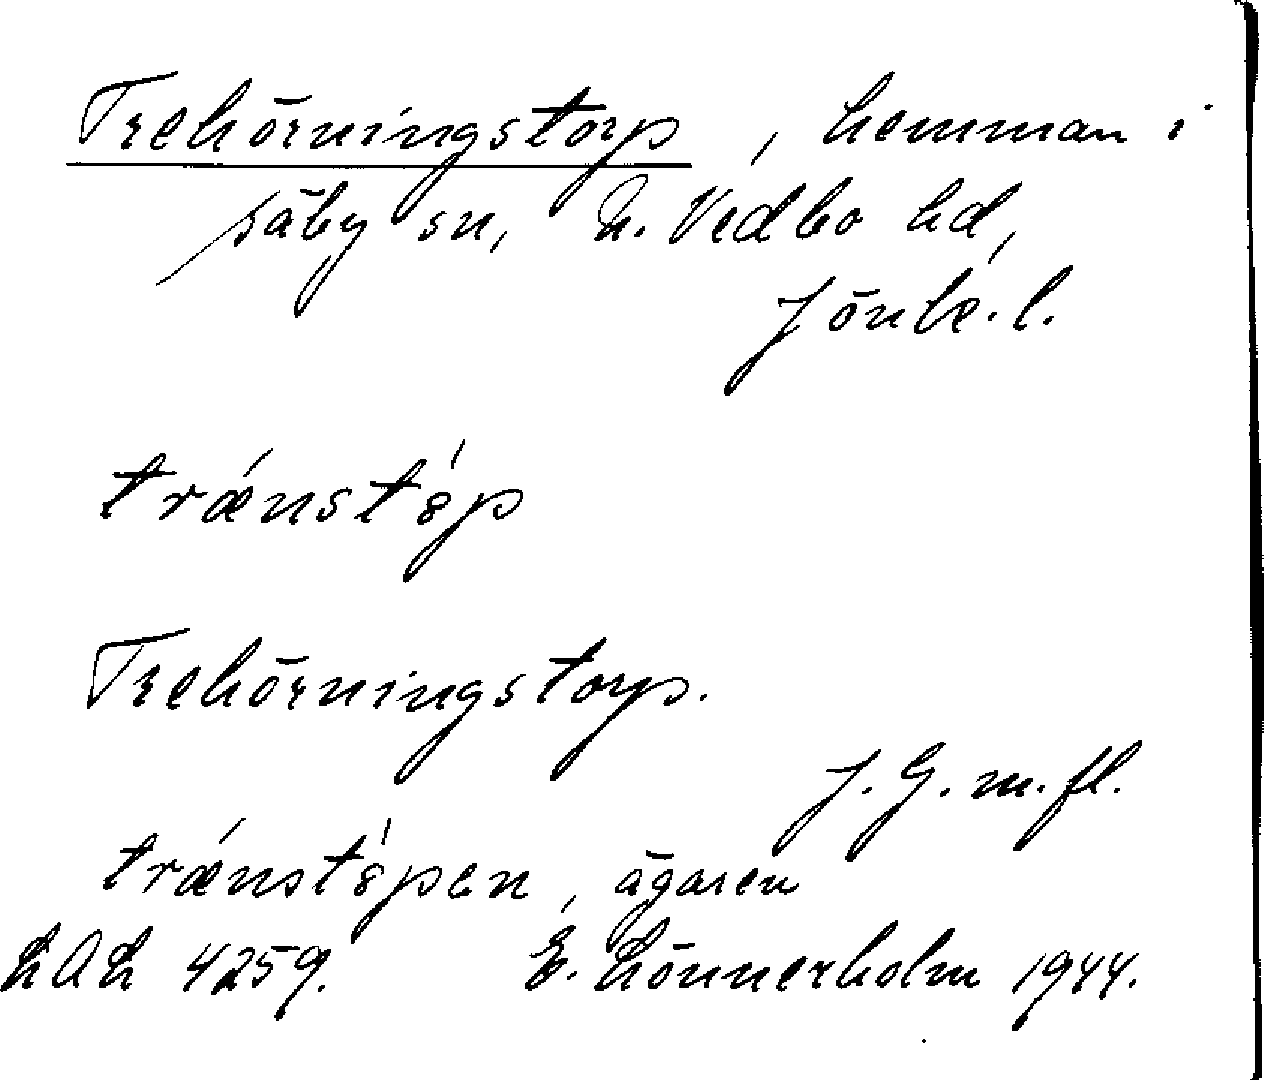 Trehörningstorp, hemman i
Säby sn, N. Vedbo hd,
Jönk. l.
trǽnstȣ́p
Trehörningstorp.
J. G. m. fl.
trǽnstȣ́pen, ägaren
LAL 4259. E. Lönnerholm 1944.